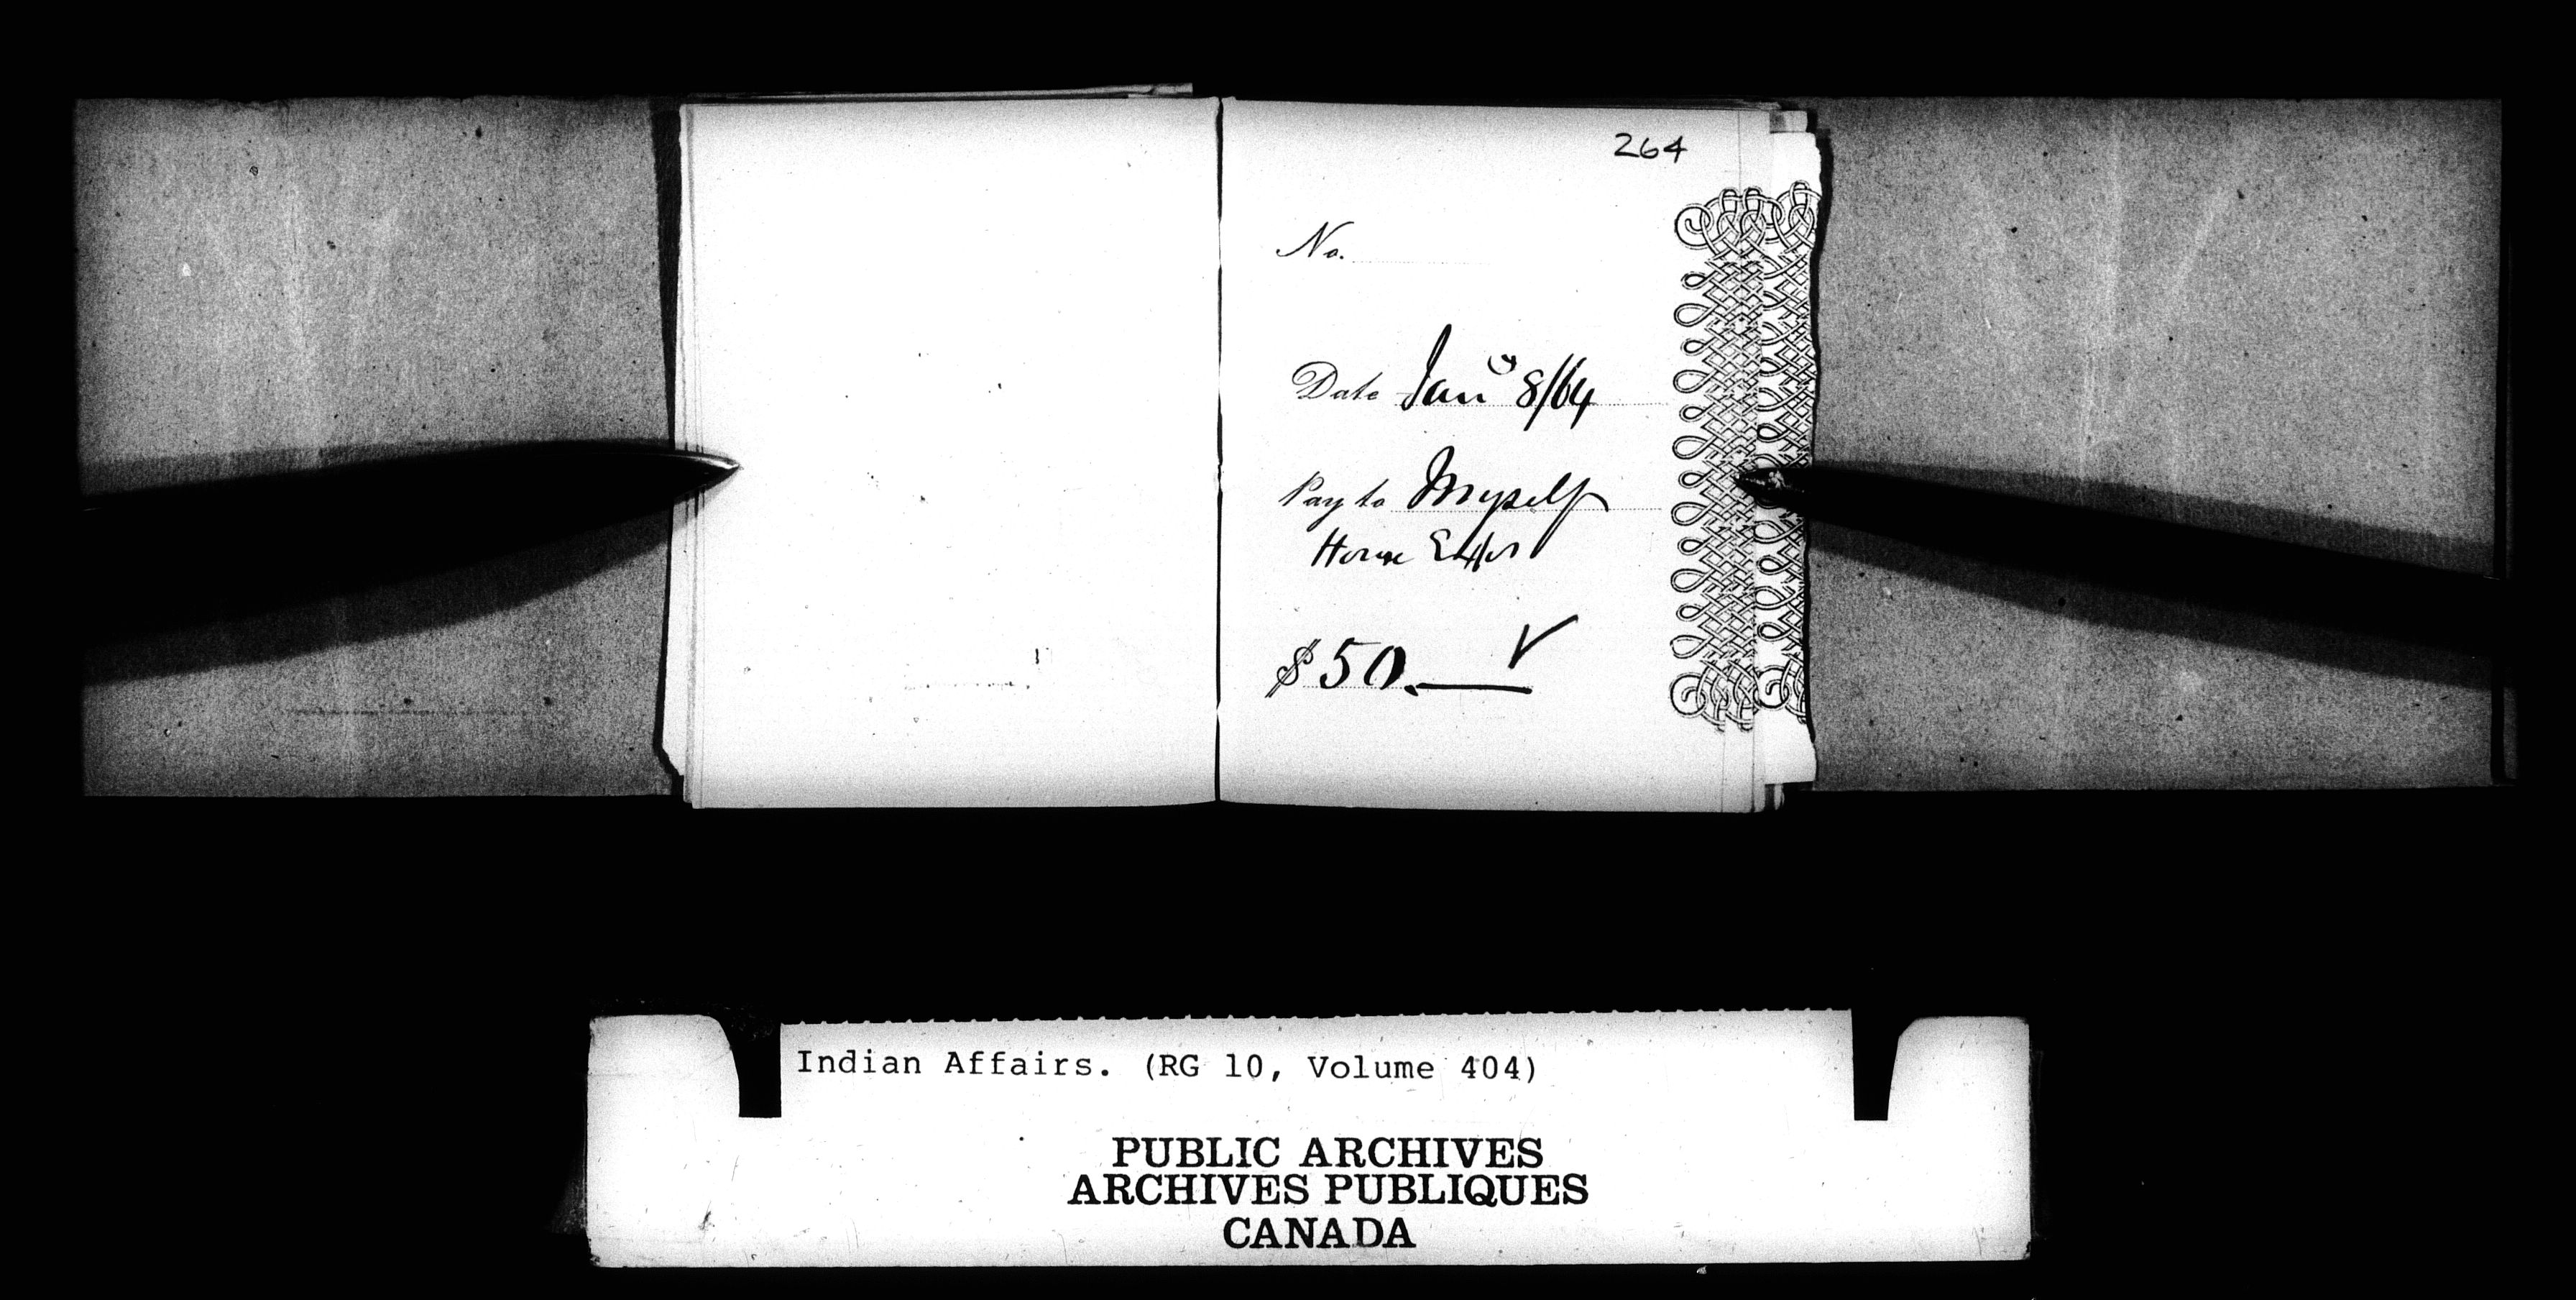 264
No.
Date Jany 8/64
Pay to Myself
House
$ 50. — ✓
Indian Affairs. (RG 10, Volume 404)
PUBLIC ARCHIVES
ARCHIVES PUBLIQUES
CANADA